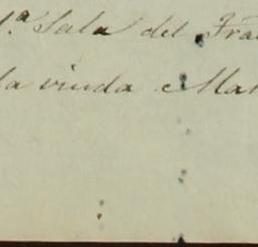 1.ª Sala del Fra
la viuda Mar